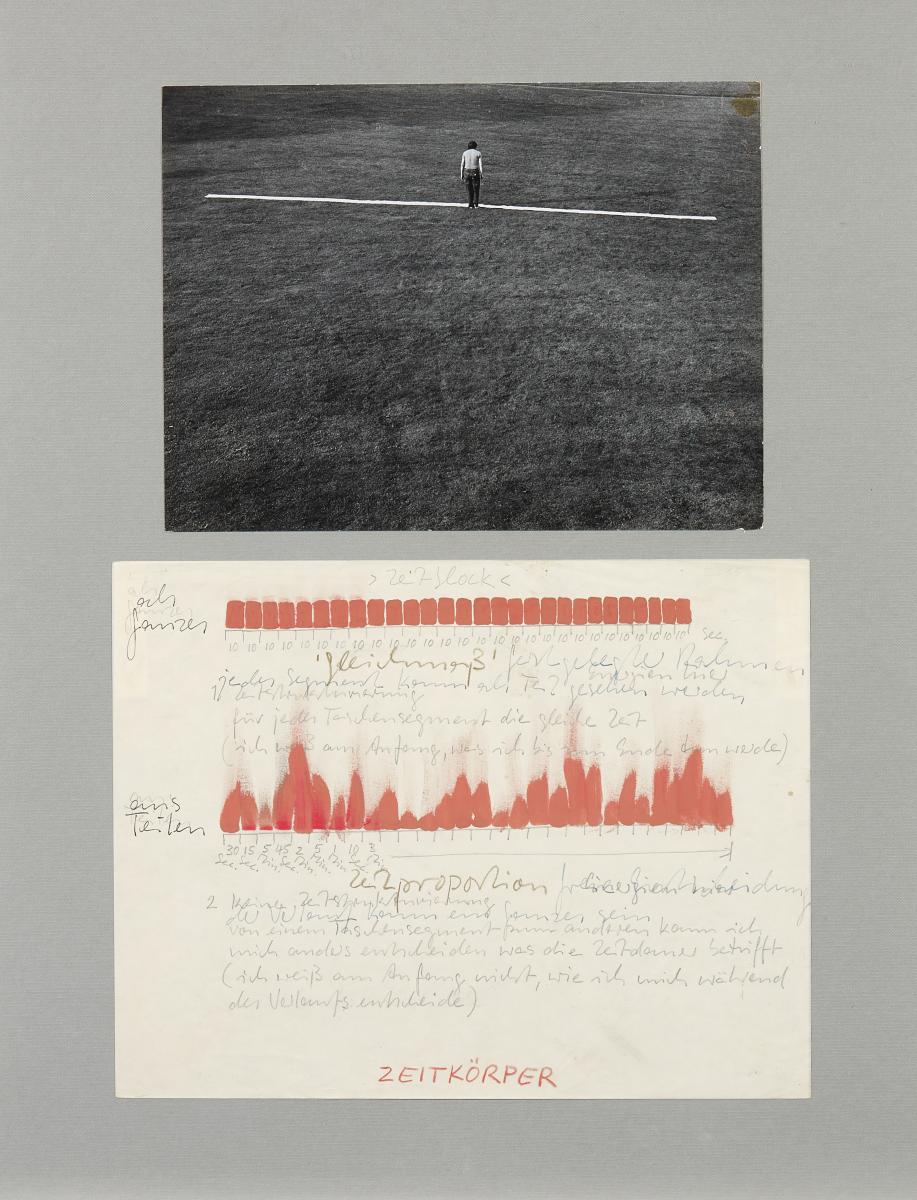 >Zeitblock<
als
Ganzes
10 10 10 10 10 10 10 10 10 10 10 10 10 10 10 10 10 10 10 10 10 10 10 10 10 10 10 sec.
'gleichmaß' festgelegter Rahmen
jedes Segment kann als Teil gesehen werden
1 Zeitstrukturierung
für jedes Taschensegment die gleiche Zeit
(ich weiß am Anfang, was ich bis zum Ende tun werde)
aus
Teilen
30 15 5 45 2 5 1 10 3
Sec. Sec. Min. Sec. Min. Min. Min. Sec. Min.
Zeitproportion
2 keine Zeitstrukturierung
der Verlauf kann ein Ganzes sein
von einem Taschensegment zum anderen kann ich
mich anders entscheiden was die Zeitdauer betrifft
(ich weiß am Anfang nicht, wie ich mich während
des Verlaufs entscheide)
ZEITKÖRPER